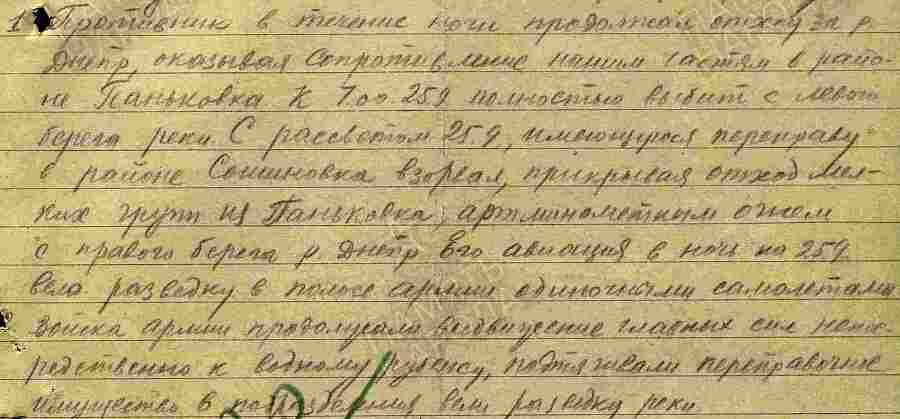 1. Противник в течение ночи продолжал отход за р.
Днепр, оказывая сопротивление нашим частям в райо-
не Паньковка. К 7.00 25.9 полностью выбит с левого
берега реки. С рассветом 25.9, имеющуюся переправу
в районе Сошиновка взорвал, прикрывая отход мел-
ких групп из Паньковка, артминометным огнем
с правого берега р. Днепр. Его авиация в ночь на 25.9
вела разведку в полосе армии одиночными самолетами.
Войска армии продолжали выдвижение главных сил непос-
редственно к водному рубежу, подтягивали переправочное
имущество в подразделения, вели разведку реки.